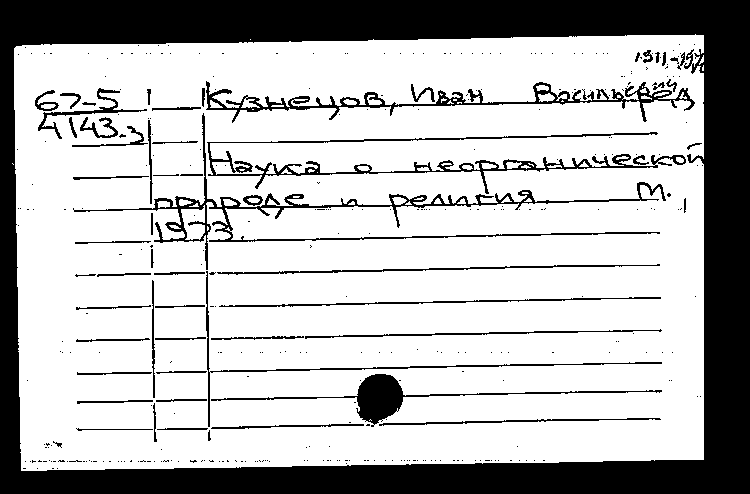 1911-1970
67-5 Кузнецов, Иван Васильевич, ред.
4143-3
Наука о неорганической
природе и религия. М.,
1973.